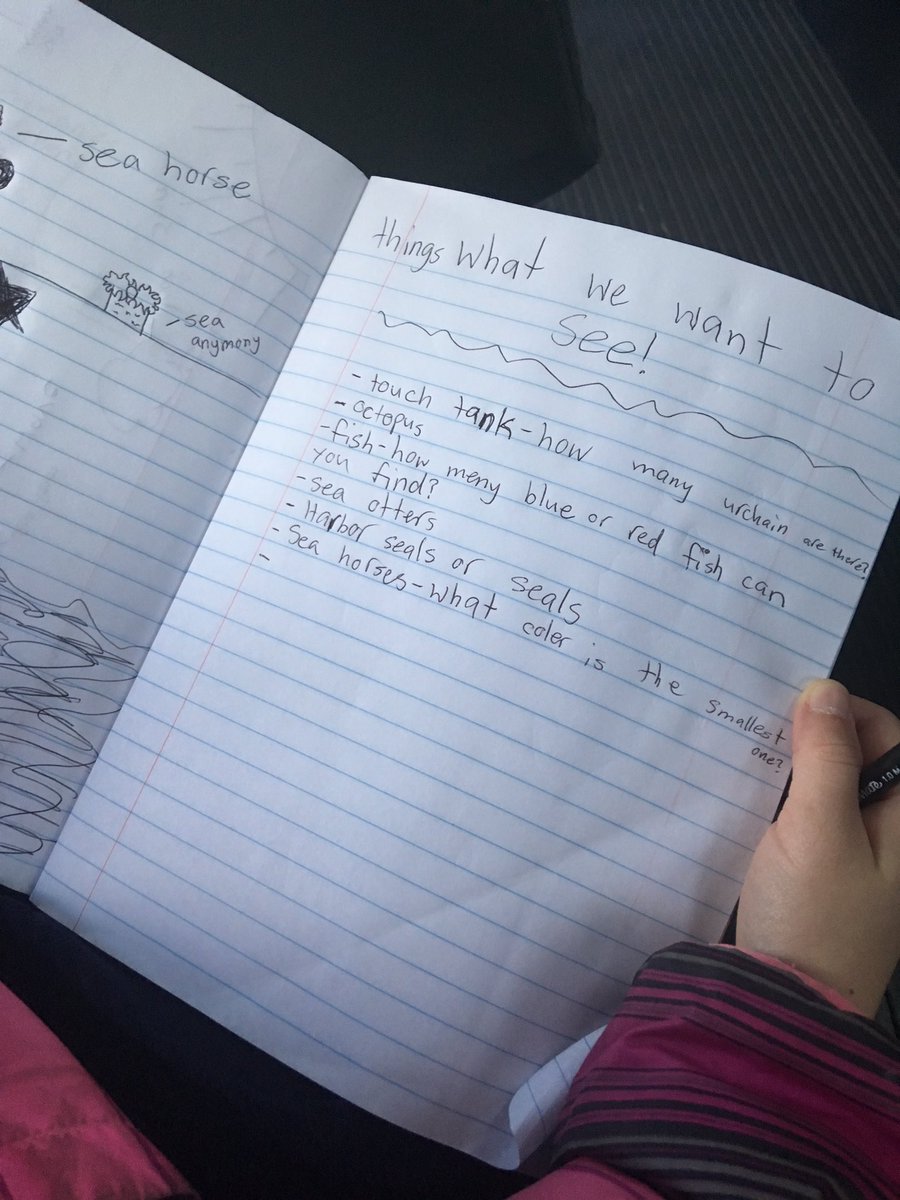 sea horse
sea
anymony
things what we want to
see!
- touch tank-how many urchain are there?
- octopus
- fish-how meny blue or red fish can
you find?
- sea otters
- Harbor seals or seals
- Sea horses-what coler is the smallest
one?
-